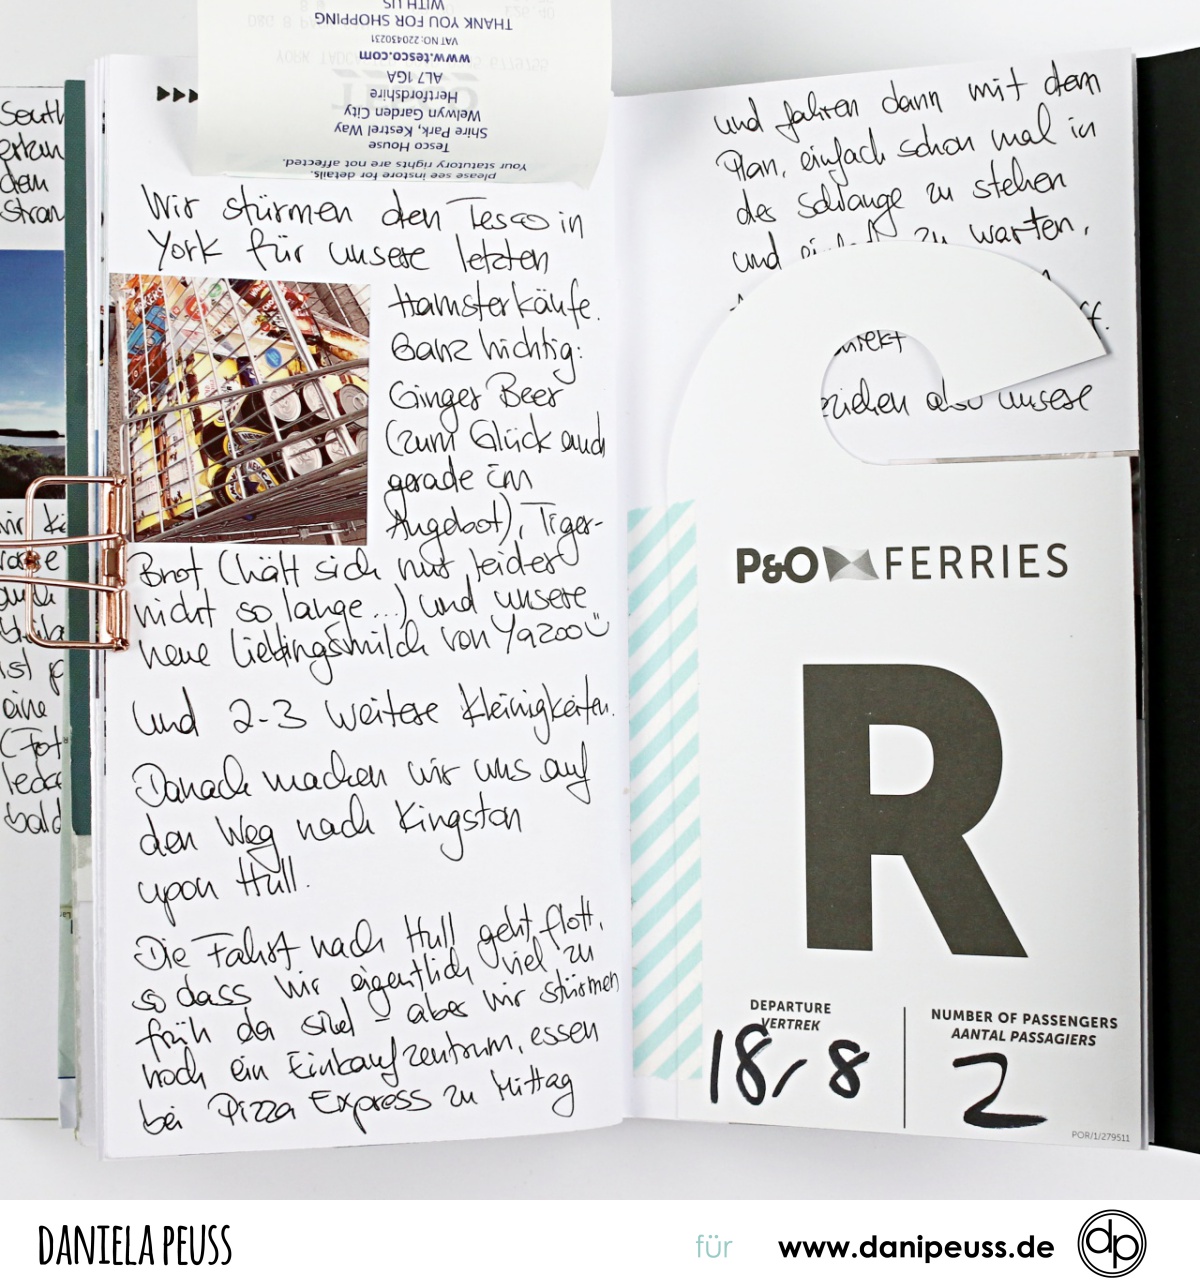 South
dem
Stran
eine
bald
WITH US
THANK YOU FOR SHOPPING
VAT NO: 220430231
www.tesco.com
AL7 1GA
Hertfordshire
Welwyn Garden City
Shire Park, Kestrel Way
Tesco House
Your statutory rights are not affected.
please see instore for details.
Wir stürmen den Tesco in
York für unsere letzten
Hamsterkäufe.
Ganz wichtig:
Ginger Beer
(zum Glück auch
gerade im
Angebot), Tiger-
Brot (hält sich nur leider
nicht so lange...) und unsere
neue Lieblingsmilch von Yazoo
Und 2-3 weitere Kleinigkeiten.
Danach machen wir uns auf
den Weg nach Kingston
upon Hull.
Die Fahrt nach Hull geht flott,
so dass wir eigentlich viel zu
früh da sind - aber wir stürmen
noch ein Einkaufzentrum, essen
bei Pizza Express zu Mittag
und fahren dann mit dem
Plan, einfach schon mal in
der Schlange zu stehen
und zu warten,
also unsere
P&O FERRIES
R
DEPARTURE
VERTREK
18/8
NUMBER OF PASSENGERS
AANTAL PASSAGIERS
2
POR/1/279511
DANIELA PEUSS
für www.danipeuss.de
dp